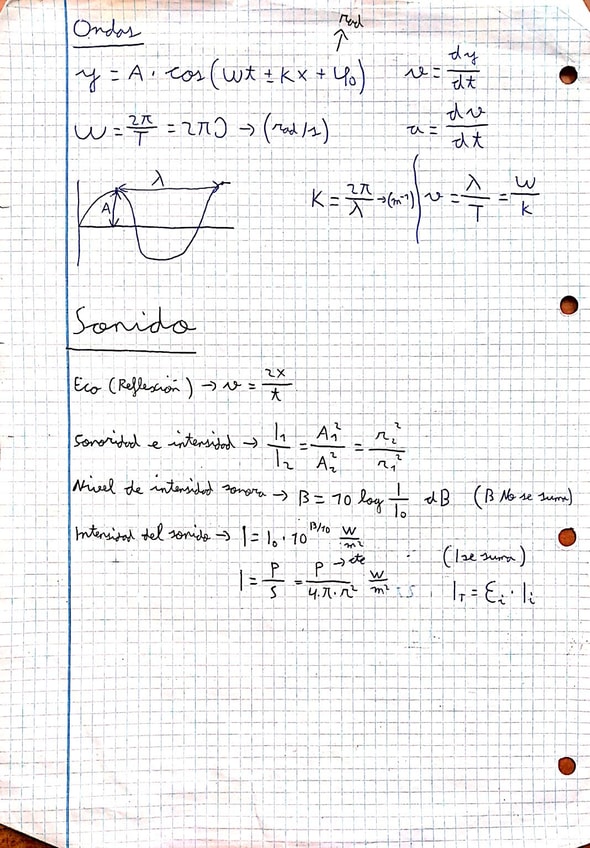 Ondas
rad
↑
y = A · cos (wt ± kx + φ₀)   v = dy/dt
W = 2π/T = 2π → (rad/s)   a = dv/dt
λ
A
K = 2π/λ → (m⁻¹) | v = λ/T = W/k
Sonido
Eco (Reflexión) → v = 2x/t
Sonoridad e intensidad → I₁/I₂ = A₁²/A₂² = r₂²/r₁²
Nivel de intensidad sonora → B = 10 log I/I₀ dB (B No se suma)
Intensidad del sonido → I = I₀ · 10^(B/10) W/m²
(I se suma)
I = P/S = P → cte / 4·π·r² W/m²   I_T = Ɛᵢ · Iᵢ